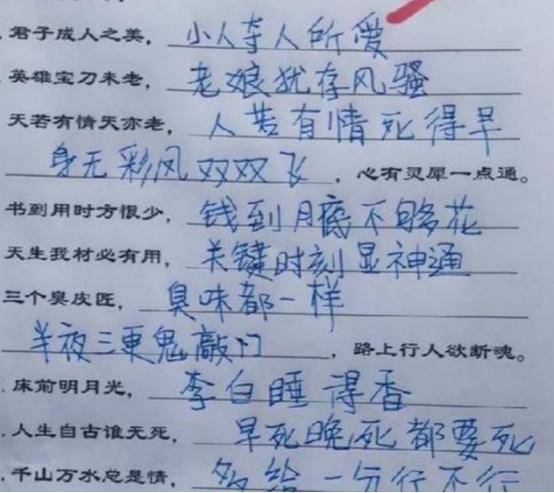 君子成人之美，小人夺人所爱
英雄宝刀未老，老娘犹存风骚
天若有情天亦老，人若有情死得早
身无彩风双双飞，心有灵犀一点通。
书到用时方恨少，钱到月底不够花
天生我材必有用，关键时刻显神通
三个臭皮匠，臭味都一样
半夜三更鬼敲门，路上行人欲断魂。
床前明月光，李白睡得香
人生自古谁无死，早死晚死都要死
千山万水总是情，多给一分行不行